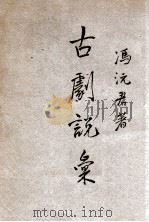 馮沅君著
古劇說彙
mtoou.info